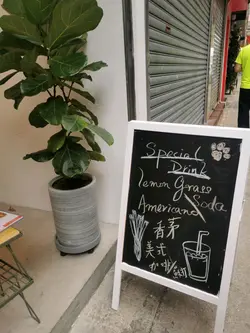 Special
Drink
lemon Grass
Soda
Americano
香茅
美式
咖啡/